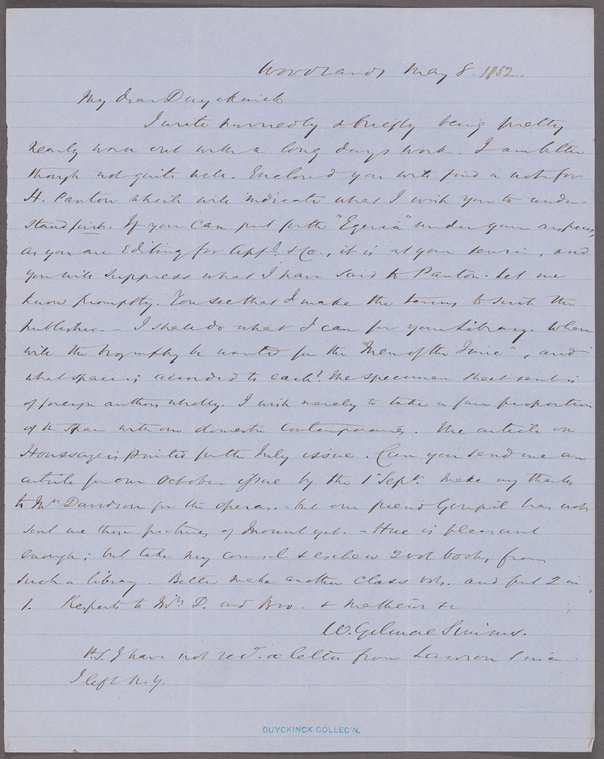 Woodlands May 8. 1852.
My dear Duyckinck
I write hurriedly & briefly being pretty
nearly worn out with a long days work. I am better
though not quite well. Enclosed you will find a note for
H. Panton which will indicate what I wish you to under-
stand first. If you can put forth "Egeria" under your auspices,
as you are Editing for Appl. & Co., it is at your service, and
you will suppress what I have said to Panton. Let me
know promptly. You see that I make the terms to suit the
publisher. — I shall do what I can for your Library. When
will the biography be wanted for the "Men of the Time", and
what space is accorded to each? The specimen sheet sent is
of foreign authors wholly. I wish merely to take a fair proportion
of the space with our domestic Contemporaries. The article on
Houssaye is printed for the July issue. Can you send me an
article for our October issue by the 1 Sept. Make my thanks
to Mr. Davidson for the operas. but our friend Goupil has not
sent me those pictures of Mount yet. - Hue is pleasant
enough; but take my counsel & eschew 2 vol books from
such a library. Better make another class vols. and put 2 in
1. Respects to Mrs D. and Bro. & Mathews &c
W. Gilmore Simms.
P.S. I have not recd. a letter from Lawson since
I left N.Y.
DUYCKINCK COLLEC'N.